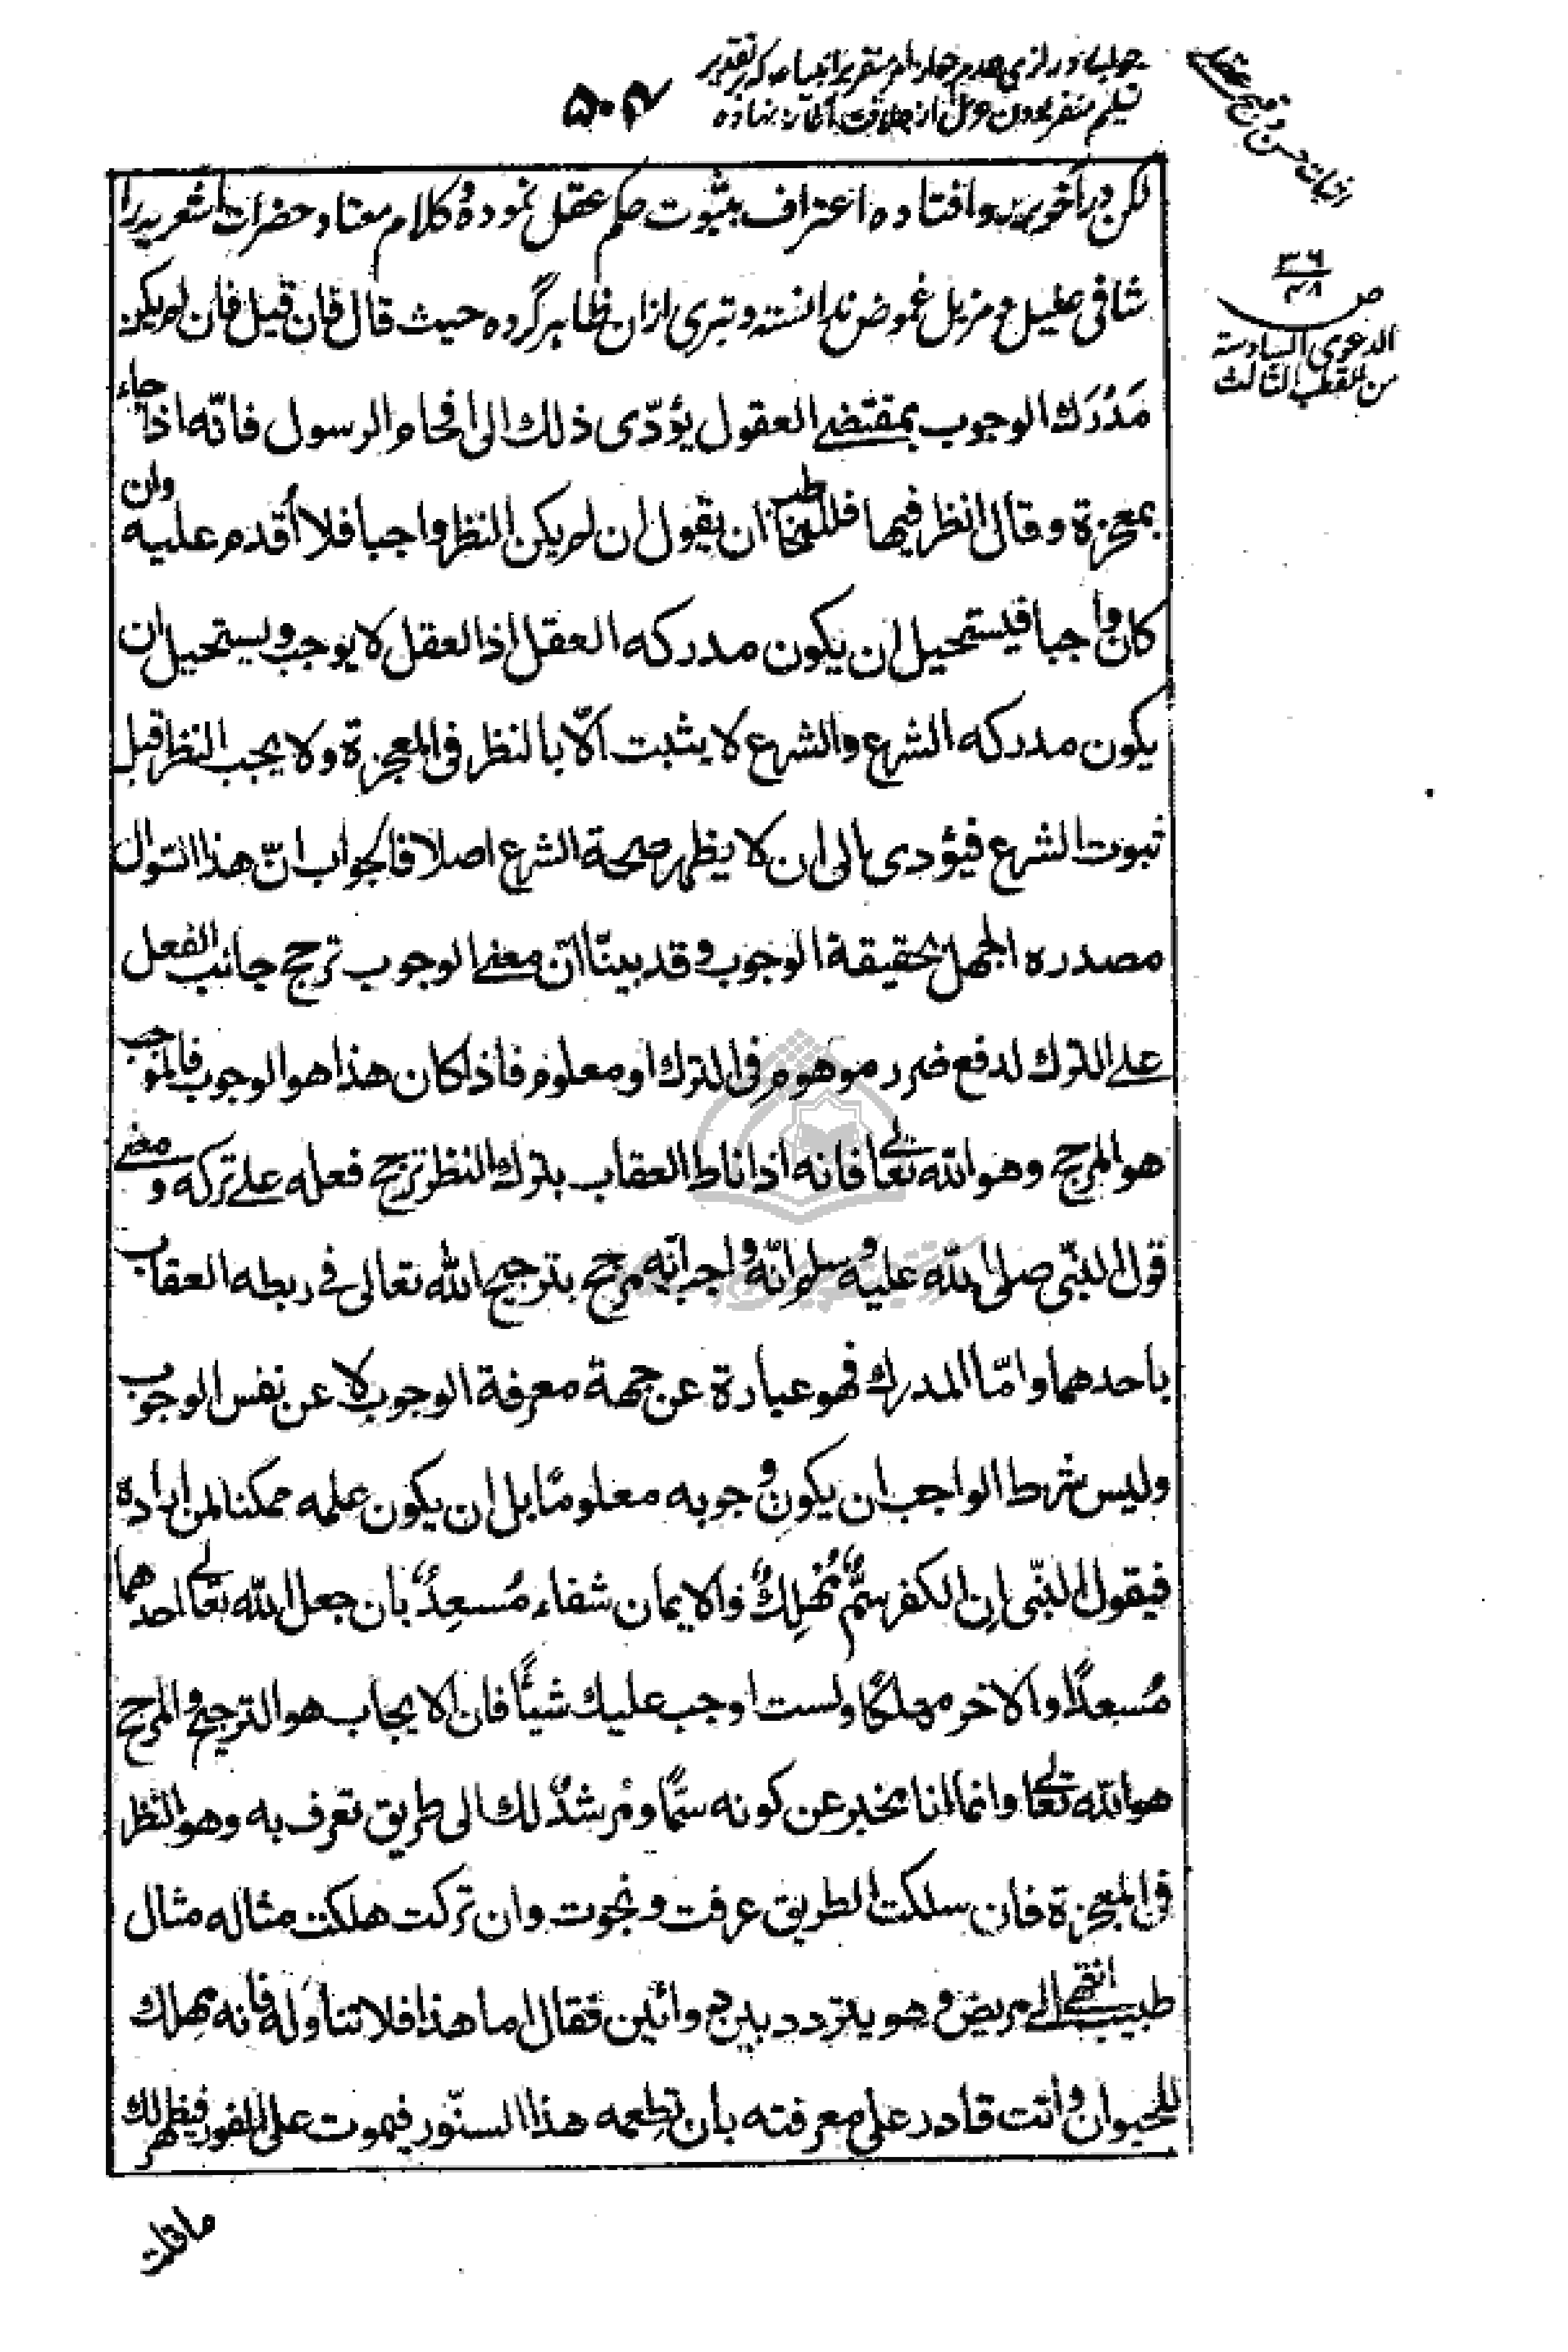 ۵۰۲
اثبات حسن و قبح عقلے
لکن در آخر بر رو افتاده اعتراف بثبوت حکم عقل نموده و کلام معتاد حضرات اشعریه را
شافی علیل و مزیل غموض ندانسته و تبری ازان ظاهر گرده حیث قال فان قیل فان لم یکن
مَدْرَك الوجوب بمقتضے العقول یؤدّی ذلك الی افحام الرسول فانّه اذا جاء
بمعجزة و قال انظر فیها فللمخاطب ان یقول ان لم یکن النظر واجبا فلا اُقدم علیه وان
کان واجبا فیستحیل ان یکون مدرکه العقل اذ العقل لا یوجب و یستحیل ان
یکون مدرکه الشرع والشرع لا یثبت الّا بالنظر فی المعجزة ولا یجب النظر قبل
ثبوت الشرع فیؤدی الی ان لا یظهر صحة الشرع اصلا فالجواب انّ هذا السّوال
مصدره الجهل بحقیقة الوجوب و قد بینّا انّ معنے الوجوب ترجح جانب الفعل
علے الترك لدفع ضرر موهوم فی الترك او معلوم فاذا کان هذا هو الوجوب فالموجب
هو المرجح وهو الله تعالے فانه اذا ناط العقاب بترك النظر ترجح فعله علے ترکه و معنے
قول النبّی صلی الله علیه وسلم انّه واجب انّه مرجح بترجیح الله تعالی فی ربطه العقاب
باحدهما وامّا المدرك فهو عبارة عن جهة معرفة الوجوب لا عن نفس الوجوب
ولیس شرط الواجب ان یکون وجوبه معلومًا بل ان یکون علمه ممکنا لمن اراده
فیقول النبّی اِن الکفر سمٌّ مُهْلِكٌ والایمان شفاء مُسعِدٌ بان جعل الله تعالے احدهما
مُسعدًا والاخر مهلکًا ولست اوجب علیك شیئًا فان الایجاب هو الترجیح والمرجح
هو الله تعالے وانما انا مخبر عن کونه سمًّا ومُرشدٌ لك الی طریق تعرف به وهو النظر
فی المعجزة فان سلکت الطریق عرفت و نجوت وان ترکت هلکت مثاله مثال
طبیب انتهے الے مریض وهو یتردد بین دوائین فقال اما هذا فلا تتناوله فانه مهلك
للحیوان وانت قادر علی معرفته بان تطعمه هذا السنّور فیموت علی الفور فیظهر لك
ما قلت
ص ۳۶/۳۸
الدعوی السادسة
من القطب الثالث